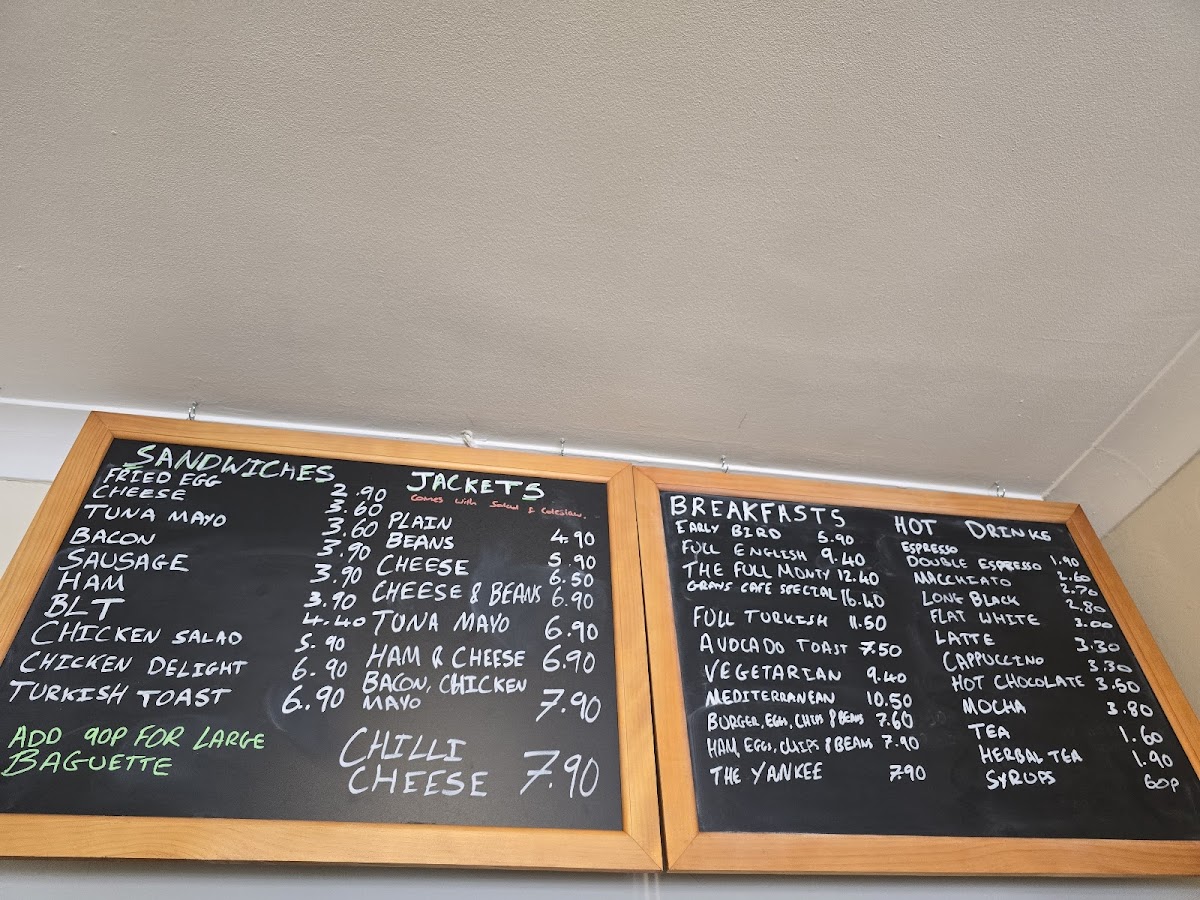 SANDWICHES
FRIED EGG 2.90
CHEESE 3.60
TUNA MAYO 3.60
BACON 3.90
SAUSAGE 3.90
HAM 3.90
BLT 4.40
CHICKEN SALAD 5.90
CHICKEN DELIGHT 6.90
TURKISH TOAST 6.90
ADD 90P FOR LARGE
BAGUETTE
JACKETS
Comes with Salad & Coleslaw.
PLAIN 4.90
BEANS 5.90
CHEESE 6.50
CHEESE & BEANS 6.90
TUNA MAYO 6.90
HAM & CHEESE 6.90
BACON, CHICKEN
MAYO 7.90
CHILLI
CHEESE 7.90
BREAKFASTS
EARLY BIRD 5.90
FULL ENGLISH 9.40
THE FULL MONTY 12.40
GRAYS CAFE SPECIAL 16.40
FULL TURKISH 11.50
AVOCADO TOAST 7.50
VEGETARIAN 9.40
MEDITERRANEAN 10.50
BURGER, EGG, CHIPS & BEANS 7.60
HAM, EGGS, CHIPS & BEANS 7.90
THE YANKEE 7.90
HOT DRINKS
ESPRESSO 1.90
DOUBLE ESPRESSO 2.60
MACCHIATO 2.70
LONG BLACK 2.80
FLAT WHITE 3.00
LATTE 3.30
CAPPUCCINO 3.30
HOT CHOCOLATE 3.50
MOCHA 3.80
TEA 1.60
HERBAL TEA 1.90
SYRUPS 60P